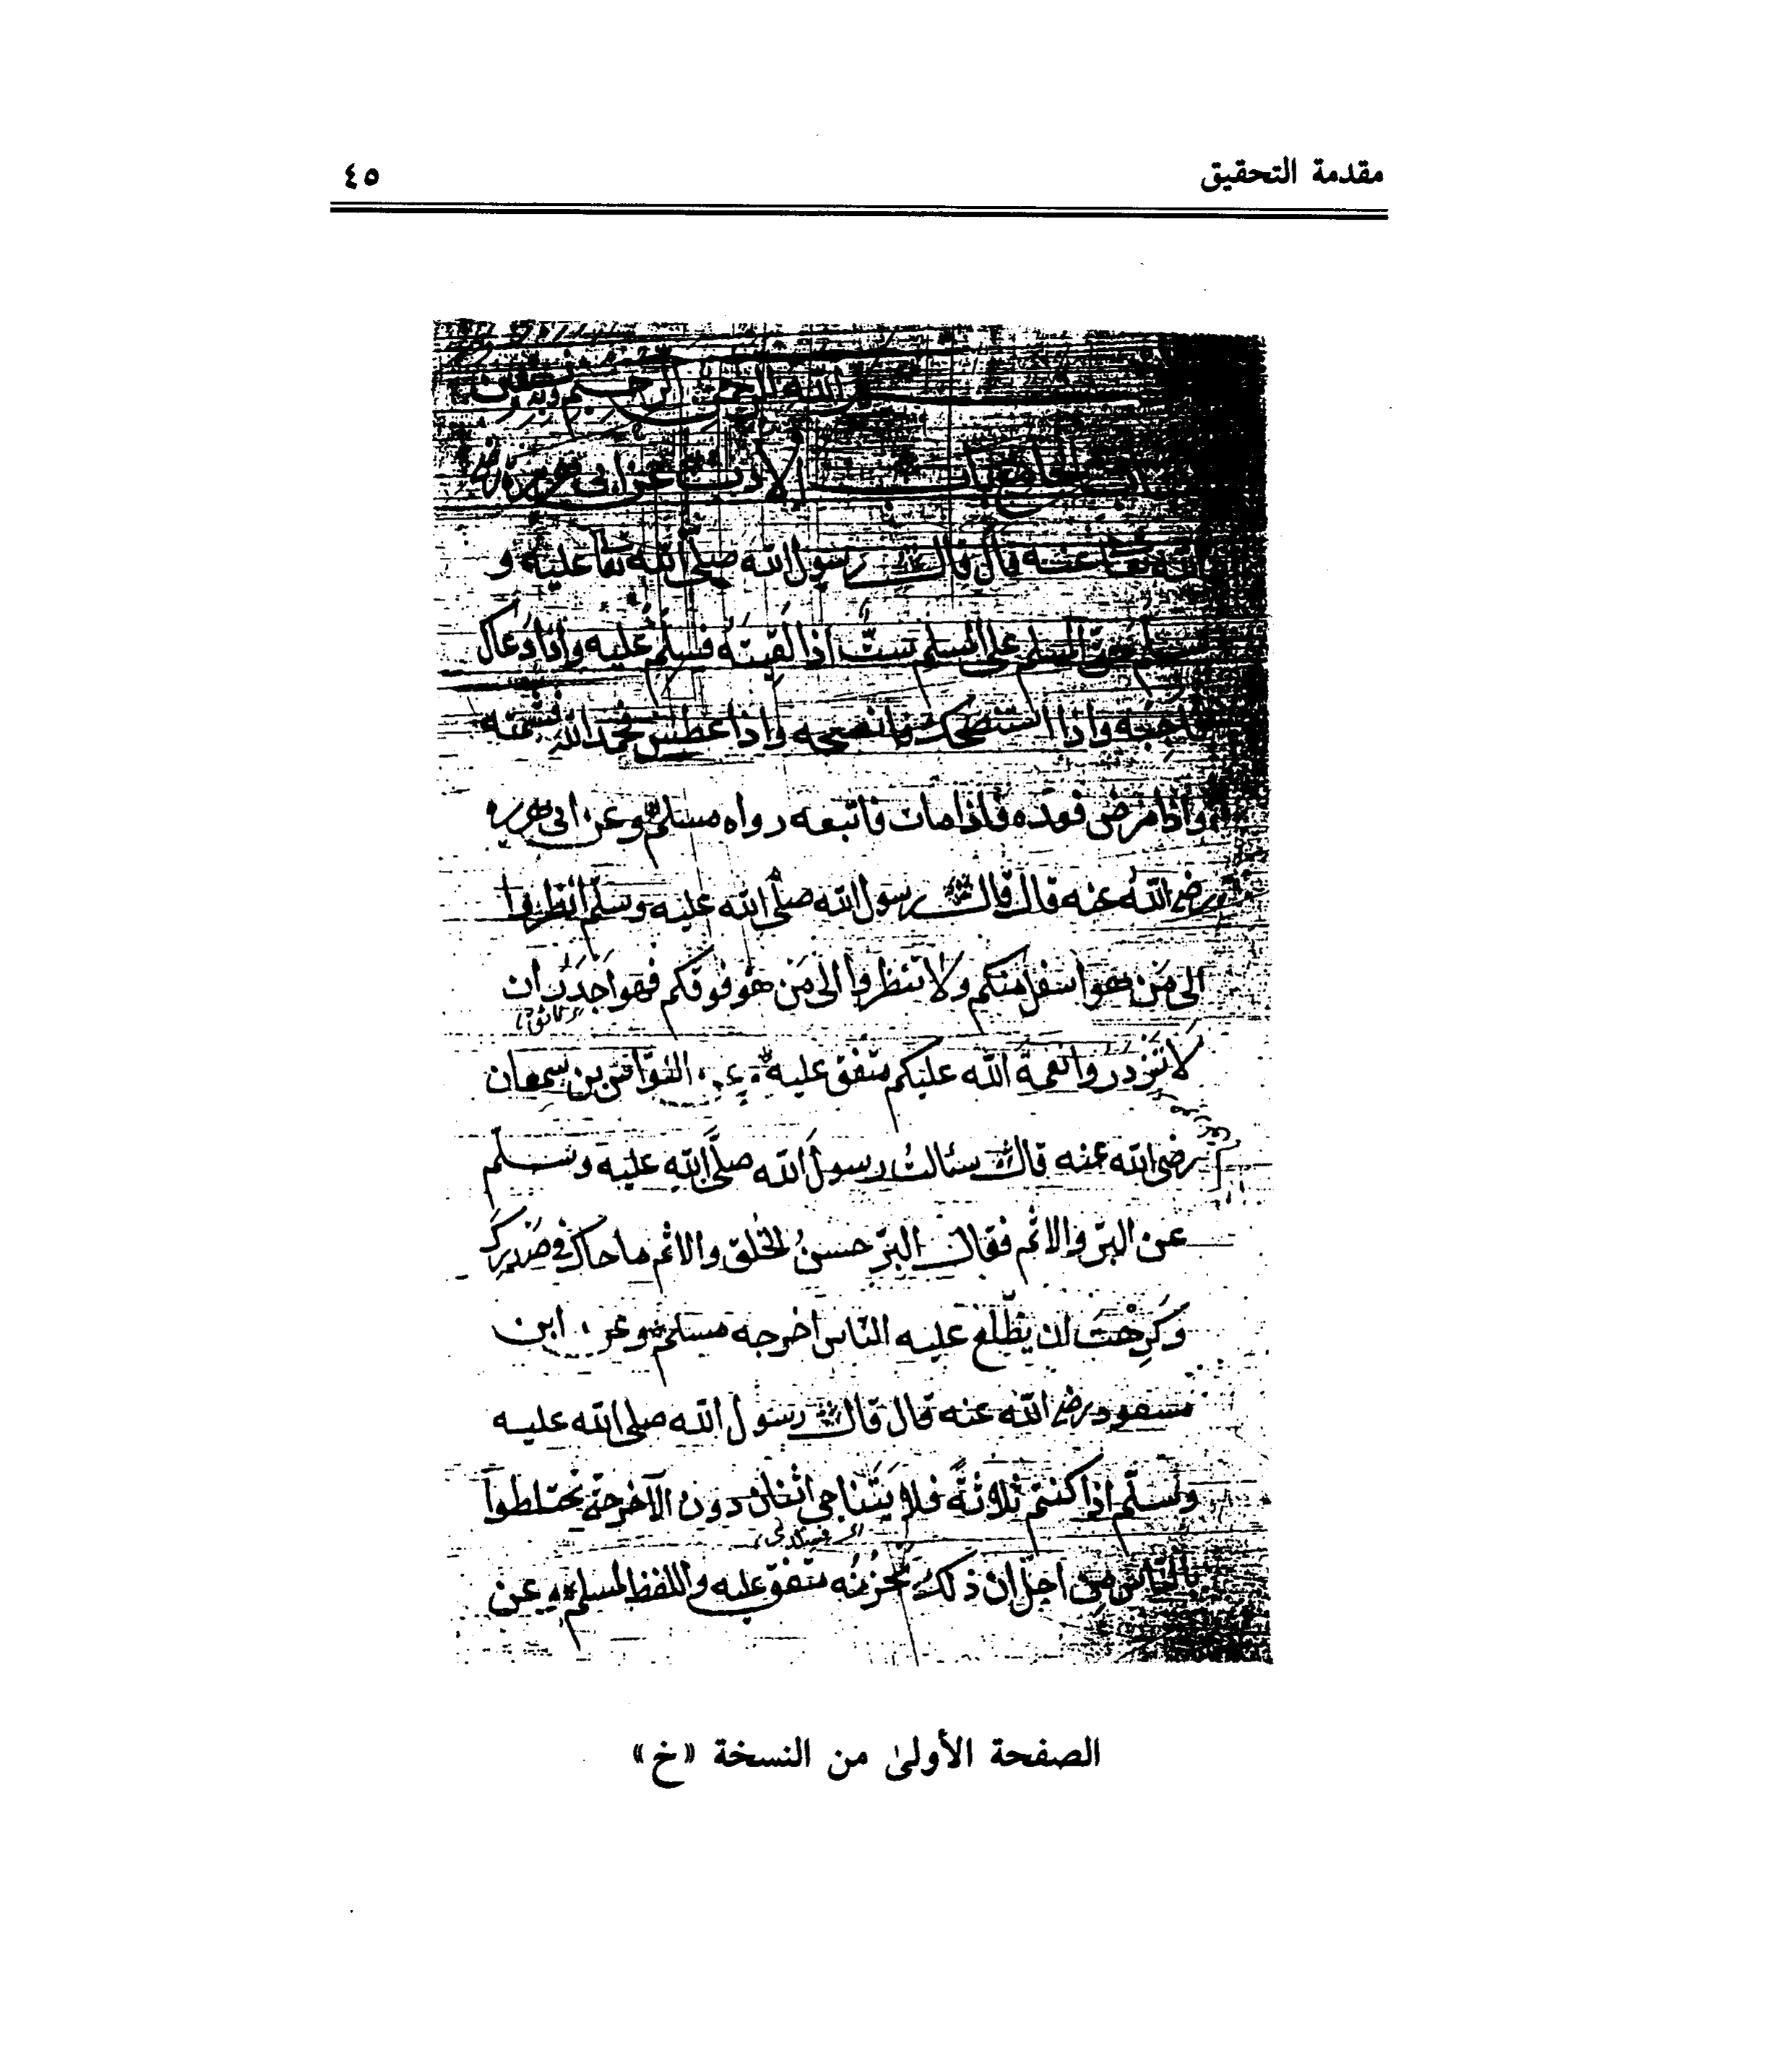 مقدمة التحقيق
٤٥
الله الرحمن الرحيم وبه نستعين
الجامع باب الادب عن ابي هريرة رضي
الله تعا عنه قال قال رسول الله صلى الله تعا عليه و
سلم حق المسلم على المسلم ستٌّ اذا لقيتَه فسلِّمْ عليه واذا دَعاك
فاجِبْه واذا استنصحك فانصحه واذا عطس فحمد الله فشمته
واذا مرض فعده فاذا مات فاتبعه رواه مسلم وعن ابى هريره
رضي الله عنه قال قال رسول الله صلى الله عليه وسلم انظروا
الى مَن هو اسفل منكم ولا تنظروا الى مَن هو فوقكم فهو اَجدَرُ ان
لا تَزْدروا نعمة الله عليكم متفق عليه وعن النوّاس بن سمعان
رضى الله عنه قال سئالتُ رسولَ الله صلَّى الله عليه وسلم
عن البرّ والاثم فقال البرّ حسنُ الخُلق والاثم ما حاك في صَدرك
وَكَرِهْتَ ان يطّلع عليه النّاس اخرجه مسلم وعن ابن
مسعود رضي الله عنه قال قال رسول الله صلى الله عليه
وسلّم اذا كنتم ثلاثةً فلا يَتَناجى اثنان دون الآخر حتى تختلطوا
بالنّاس مِن اجل ان ذلك يُحزِنُه متفق عليه واللفظ لمسلم وعن
الصفحة الأولىٰ من النسخة «خ»